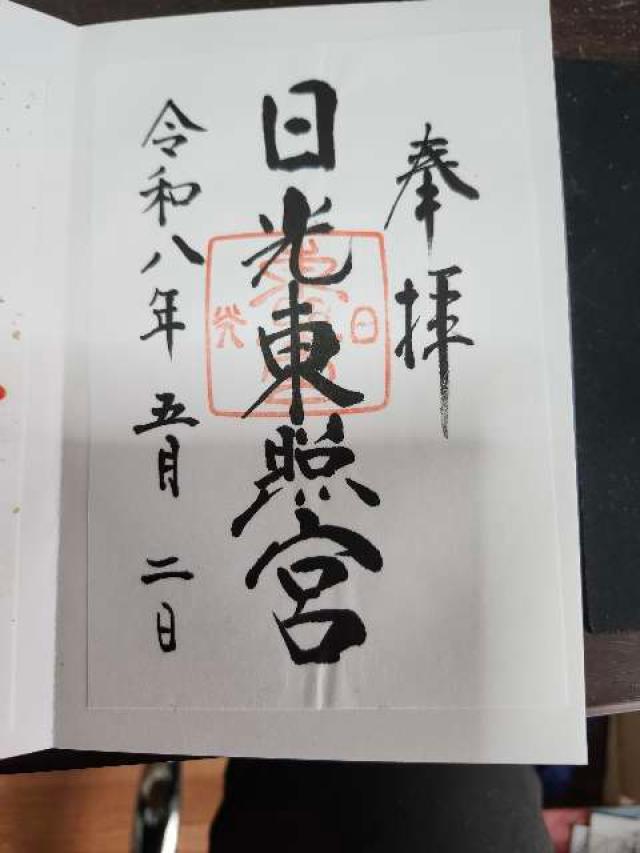 奉拝
日光東照宮
令和八年五月二日
日
光